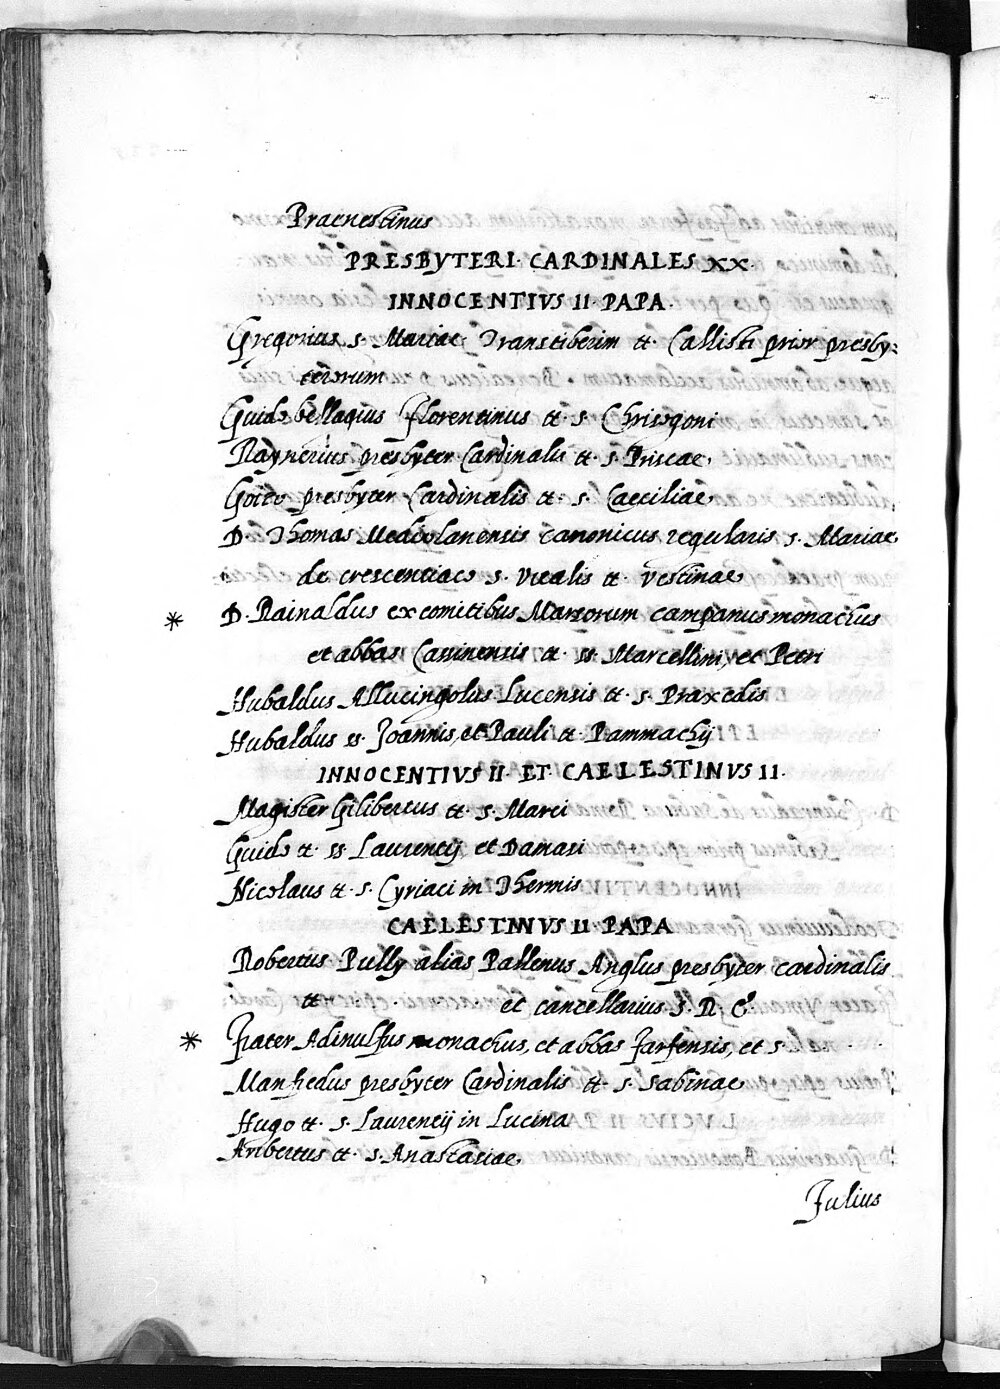 Praenestinus
PRESBYTERI. CARDINALES XX.
INNOCENTIVS II. PAPA.
Gregorius s. Mariae Transtiberim tt. Callisti prior presby=
terorum
Guido bellagius Florentinus tt. s. Chrisogoni
Raynerius presbyter Cardinalis tt. s. Priscae.
Goizo presbyter Cardinalis tt. s. Caeciliae.
D. Thomas Mediolanensis canonicus regularis s. Mariae
de crescentiaco s. vitalis tt. vestinae
* D. Rainaldus ex comitibus Marsorum campanus monachus
et abbas Cassinensis tt. ss. Marcellini, et Petri
Hubaldus Allucingolus Lucensis tt. s. Praxedis
Hubaldus ss. Joannis, et Pauli tt. Pammachij
INNOCENTIVS II. ET CAELESTINVS II.
Magister Gilibertus tt. s. Marci
Guido tt. ss Laurentij et Damasi
Nicolaus tt. s. Cyriaci in Thermis
CAELESTINVS II. PAPA
Robertus Pully alias Pallenus Anglus presbyter cardinalis
tt. et cancellarius S. R. E.
* Frater Adinulfus monachus, et abbas Farfensis, et s. . . .
Manfredus presbyter Cardinalis tt. s. Sabinae
Hugo tt. s. Laurentij in Lucina
Aribertus tt. s. Anastasiae
Julius